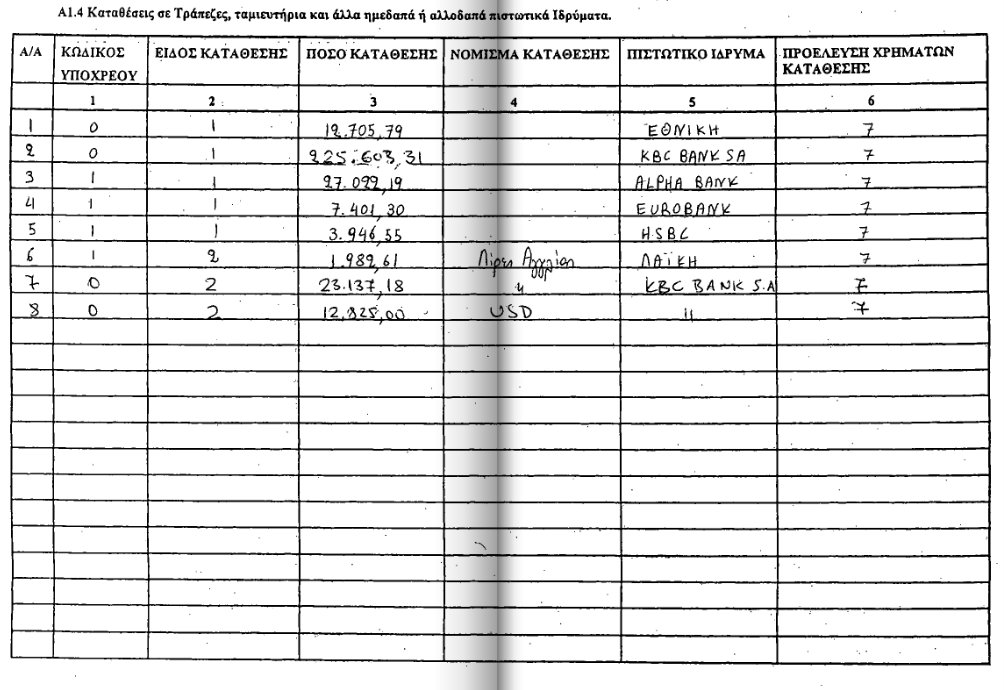 Α1.4 Καταθέσεις σε Τράπεζες, ταμιευτήρια και άλλα ημεδαπά ή αλλοδαπά πιστωτικά Ιδρύματα.
Α/Α ΚΩΔΙΚΟΣ ΥΠΟΧΡΕΟΥ ΕΙΔΟΣ ΚΑΤΑΘΕΣΗΣ ΠΟΣΟ ΚΑΤΑΘΕΣΗΣ ΝΟΜΙΣΜΑ ΚΑΤΑΘΕΣΗΣ ΠΙΣΤΩΤΙΚΟ ΙΔΡΥΜΑ ΠΡΟΕΛΕΥΣΗ ΧΡΗΜΑΤΩΝ ΚΑΤΑΘΕΣΗΣ
1 2 3 4 5 6
1 0 1 12.705,79 ΕΘΝΙΚΗ 7
2 0 1 225.603,31 KBC BANK SA 7
3 1 1 27.022,19 ALPHA BANK 7
4 1 1 7.401,30 EUROBANK 7
5 1 1 3.946,55 HSBC 7
6 1 2 1.982,61 Λίρες Αγγλίας ΛΑΪΚΗ 7
7 0 2 23.137,18 " KBC BANK S.A 7
8 0 2 12.825,00 USD " 7